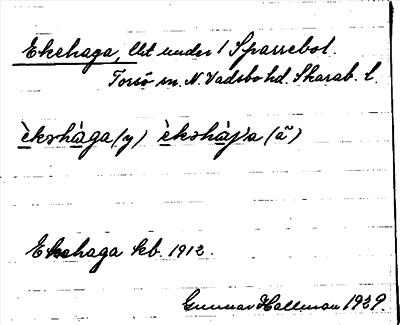 Ekehaga, lht under 1 Sparrebol.
Torsö sn. N. Vadsbo hd. Skarab. l.
èkshàga (y) èkshàja (ã)
Ekehaga kb. 1912.
Gunnar Hallman 1939.